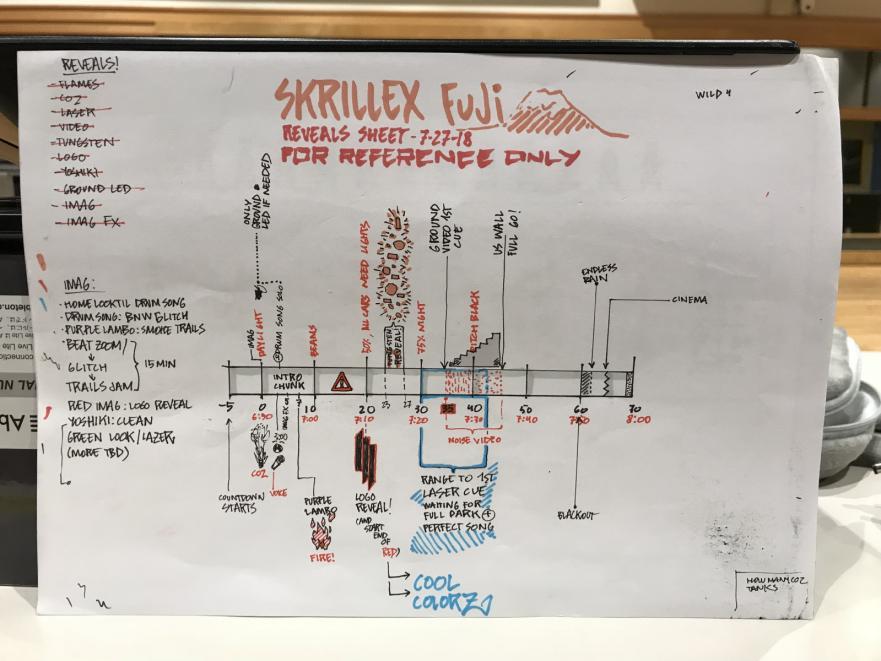 REVEALS!
- FLAMES
- CO2
- LASER
- VIDEO
- TUNGSTEN
- LOGO
- YOSHIKI
- GROUND LED
- IMAG
- IMAG FX
SKRILLEX FUJI
REVEALS SHEET - 7-27-18
FOR REFERENCE ONLY
WILD 4
IMAG:
· HOME LOOK TIL DRUM SONG
· DRUM SONG: BNW GLITCH
· PURPLE LAMBO: SMOKE TRAILS
· BEAT ZOOM/
GLITCH
TRAILS JAM
15 MIN
RED IMAG: LOGO REVEAL
· YOSHIKI: CLEAN
GREEN LOOK/LAZER
(MORE TBD)
ONLY
GROUND
LED IF NEEDED
IMAG
DAYLIGHT
@DRUM SONG SOLO
BEANS
50%, ALL CARS NEED LIGHTS
TUNGSTEN
REVEAL
75% NIGHT
GROUND
VIDEO 1ST
CUE
PITCH BLACK
US WALL
FULL GO!
ENDLESS
RAIN
CINEMA
INTRO
CHUNK
-5
0
7
10
20
23
27
30
35
40
50
60
70
6:50
7:00
7:10
7:20
7:30
7:40
7:50
8:00
NOISE VIDEO
COUNTDOWN
STARTS
CO2
VOICE
PURPLE
LAMBO
FIRE!
LOGO
REVEAL!
(AND
START
END
OF
RED)
COOL
COLORZ
RANGE TO 1ST
LASER CUE
WAITING FOR
FULL DARK +
PERFECT SONG
BLACKOUT
HOW MANY CO2
TANKS